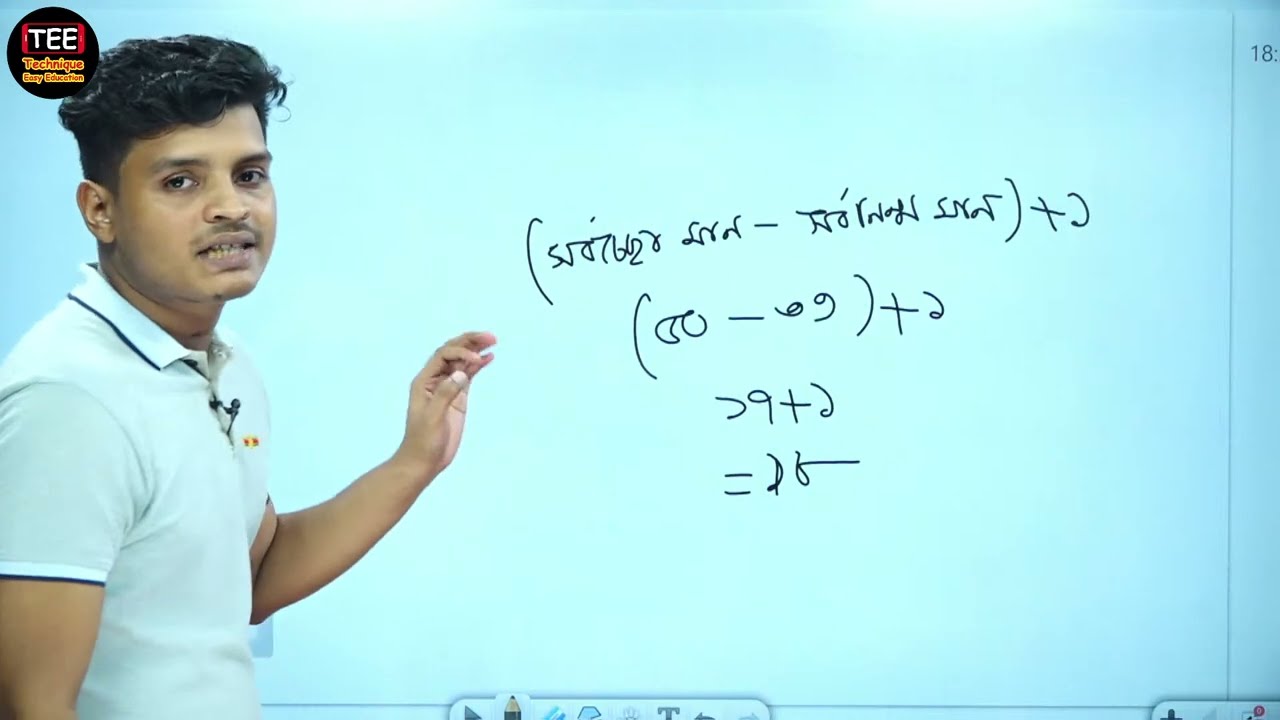 TEE
Technique
Easy Education
18:
(সর্বোচ্চ মান – সর্বনিম্ন মান) + ১
(৫০ – ৩৩) + ১
১৭+১
= ১৮